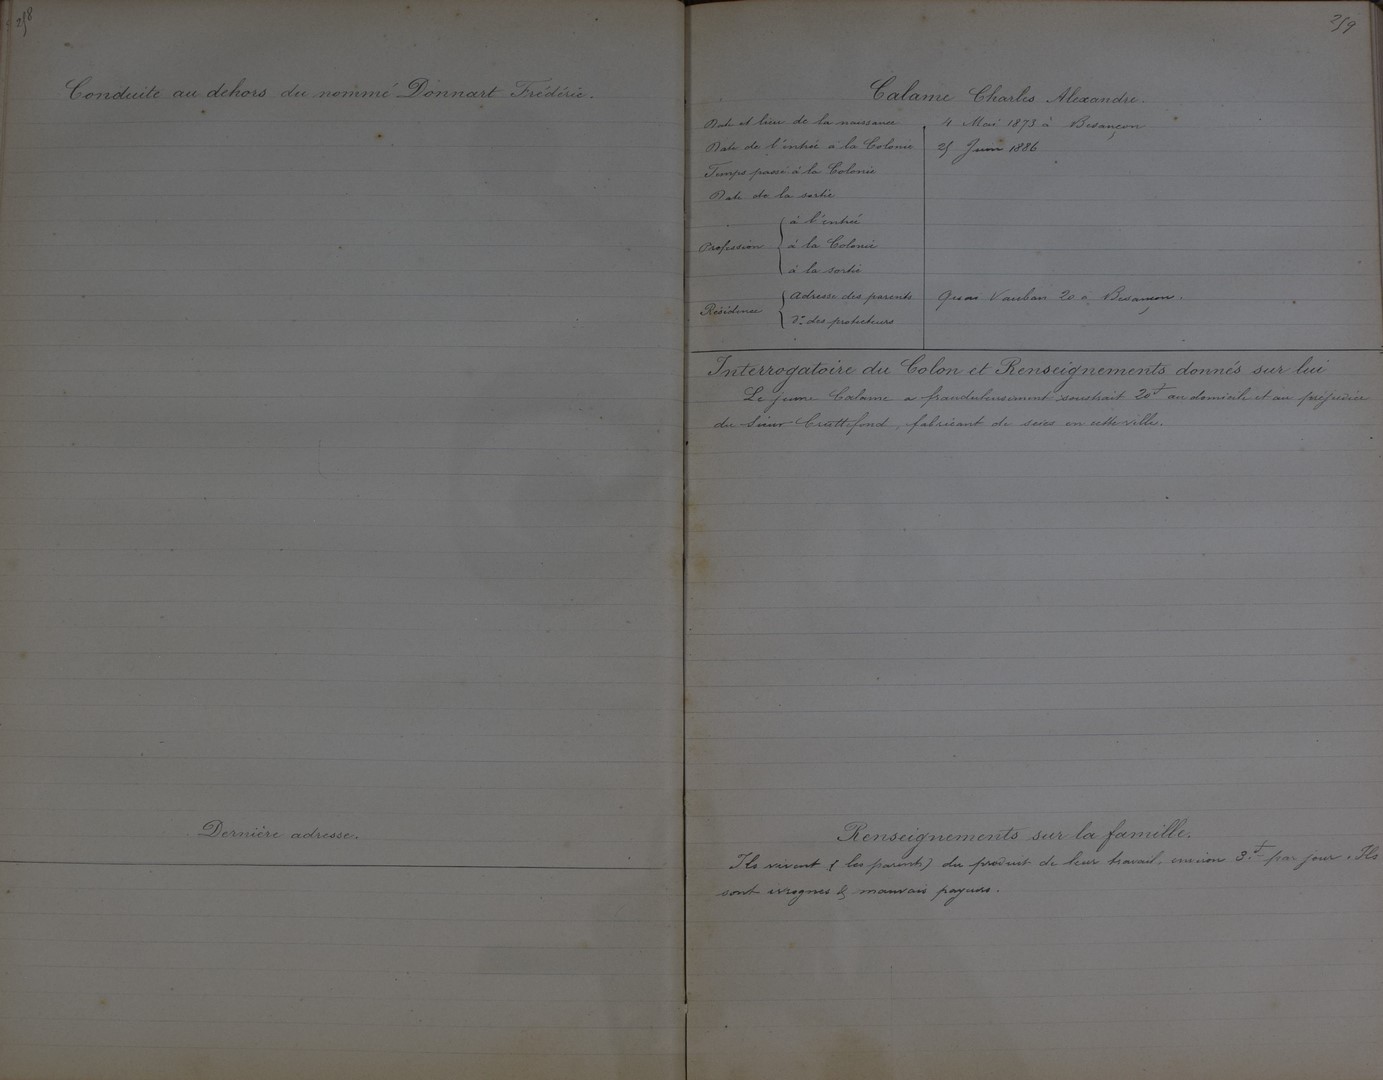 258
Conduite au dehors du nommé Donnart Frédéric.
Dernière adresse.
259
Calame Charles Alexandre.
Date et lieu de la naissance 4 Mai 1873 à Besançon
Date de l'entrée à la Colonie 25 Juin 1886
Temps passé à la Colonie
Date de la sortie
Profession
à l'entrée
à la Colonie
à la sortie
Résidence
Adresse des parents Quai Vauban 20 à Besançon.
do des protecteurs
Interrogatoire du Colon et Renseignements donnés sur lui
Le jeune Calame a frauduleusement soustrait 20f au domicile et au préjudice
du Sieur fabricant de scies en cette ville.
Renseignements sur la famille.
Ils vivent (les parents) du produit de leur travail, environ 3.f par jour. Ils
sont ivrognes & mauvais payeurs.